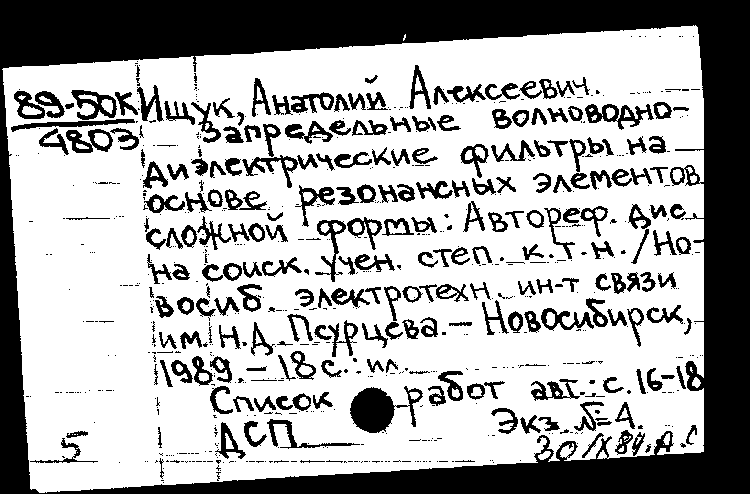 89-50К Ищук, Анатолий Алексеевич.
4803 Запредельные волноводно-
диэлектрические фильтры на
основе резонансных элементов
сложной формы: Автореф. дис.
на соиск. учен. степ. к.т.н./Но-
восиб. электротехн. ин-т связи
им. Н.Д. Псурцева.- Новосибирск,
1989.- 18 с.: ил.
Список работ авт.: с. 16-18
5 ДСП Экз. №4.
30/IX 89. А.С